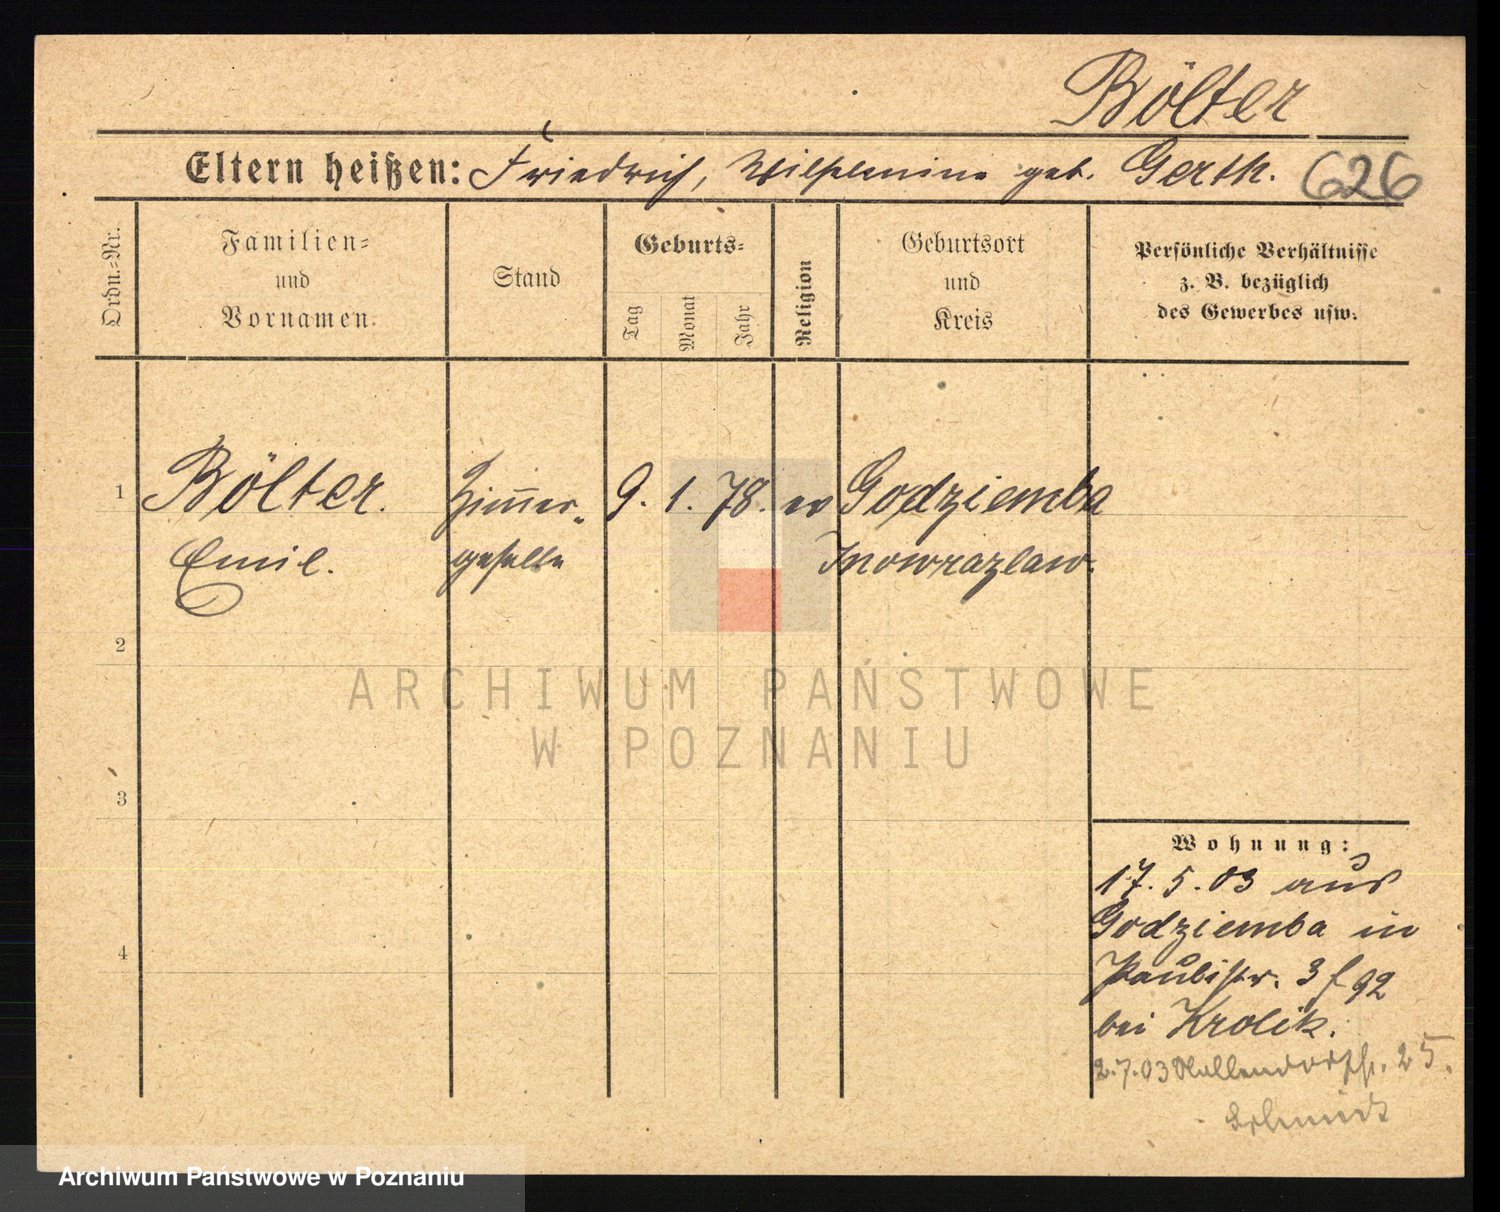 Bölter
Eltern heißen: Friedrich, Wilhelmine geb. Gerth. 626
Ordn.-Nr.
Familien-
und
Vornamen.
Stand
Geburts-
Tag
Monat
Jahr
Religion
Geburtsort
und
Kreis
Persönliche Verhältnisse
z. B. bezüglich
des Gewerbes usw.
1 Bölter. Zimmer- 9. 1. 78. ev Godziemba
Emil. geselle Inowrazlaw.
2
ARCHIWUM PAŃSTWOWE
W POZNANIU
3
Wohnung:
17. 5. 03 aus
Godziemba in
Paulistr. 3 f 92
4
bei Krolik.
2.7.03 25.
Schmidt
Archiwum Państwowe w Poznaniu